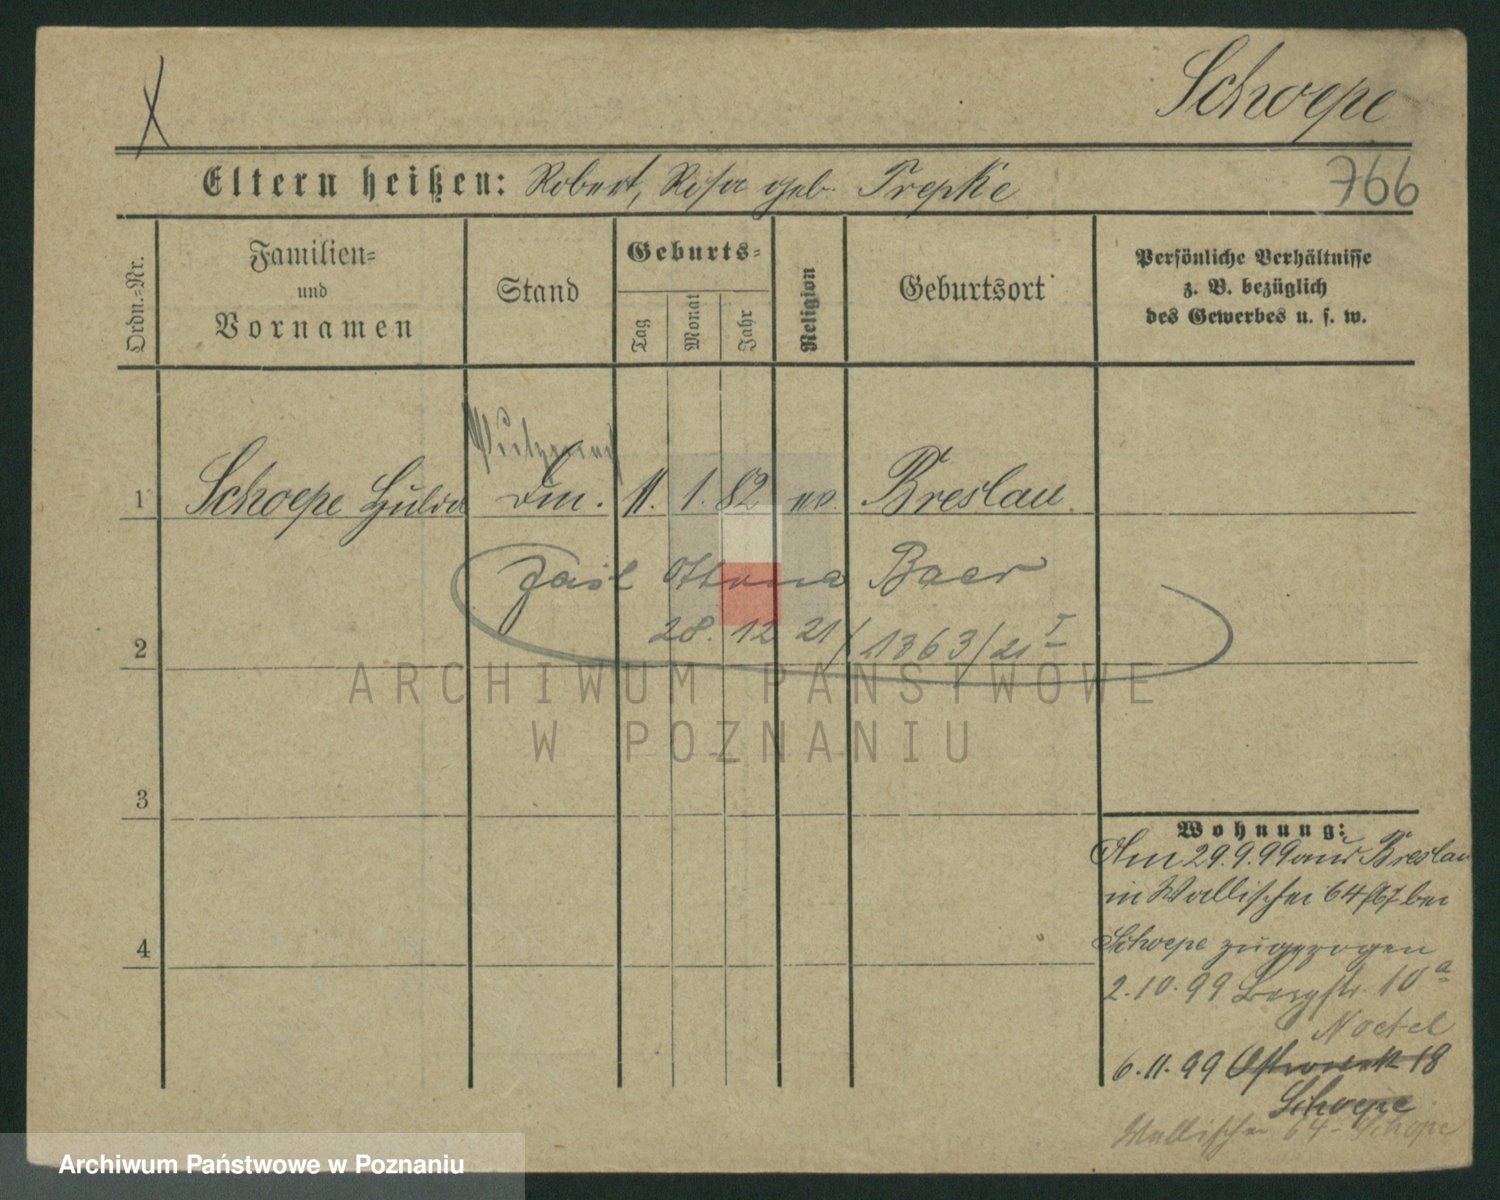 Schoepe
Eltern heißen: Robert, Rosa geb. Prepke
766
Ordn.=Nr.
Familien=
und
Vornamen
Stand
Geburts=
Tag
Monat
Jahr
Religion
Geburtsort
Persönliche Verhältnisse
z. B. bezüglich
des Gewerbes u. s. w.
1 Schoepe Hulda 11. 1. 82 ev. Breslau.
Baer
28. 12 21 / 1363/21 I
2
3
4
ARCHIWUM PAŃSTWOWE
W POZNANIU
Wohnung:
Am 29.9.99 aus Breslau
in Wallischei 64/67 bei
Schoepe zugezogen
2.10.99 Bergstr. 10a
6.11.99 18
Schoepe
Wallischei 64 Schoepe
Archiwum Państwowe w Poznaniu